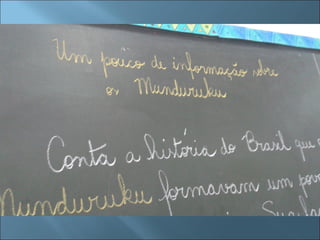 Um pouco de informação sobre
os Munduruku
Conta a história do Brasil que
Munduruku formavam um povo